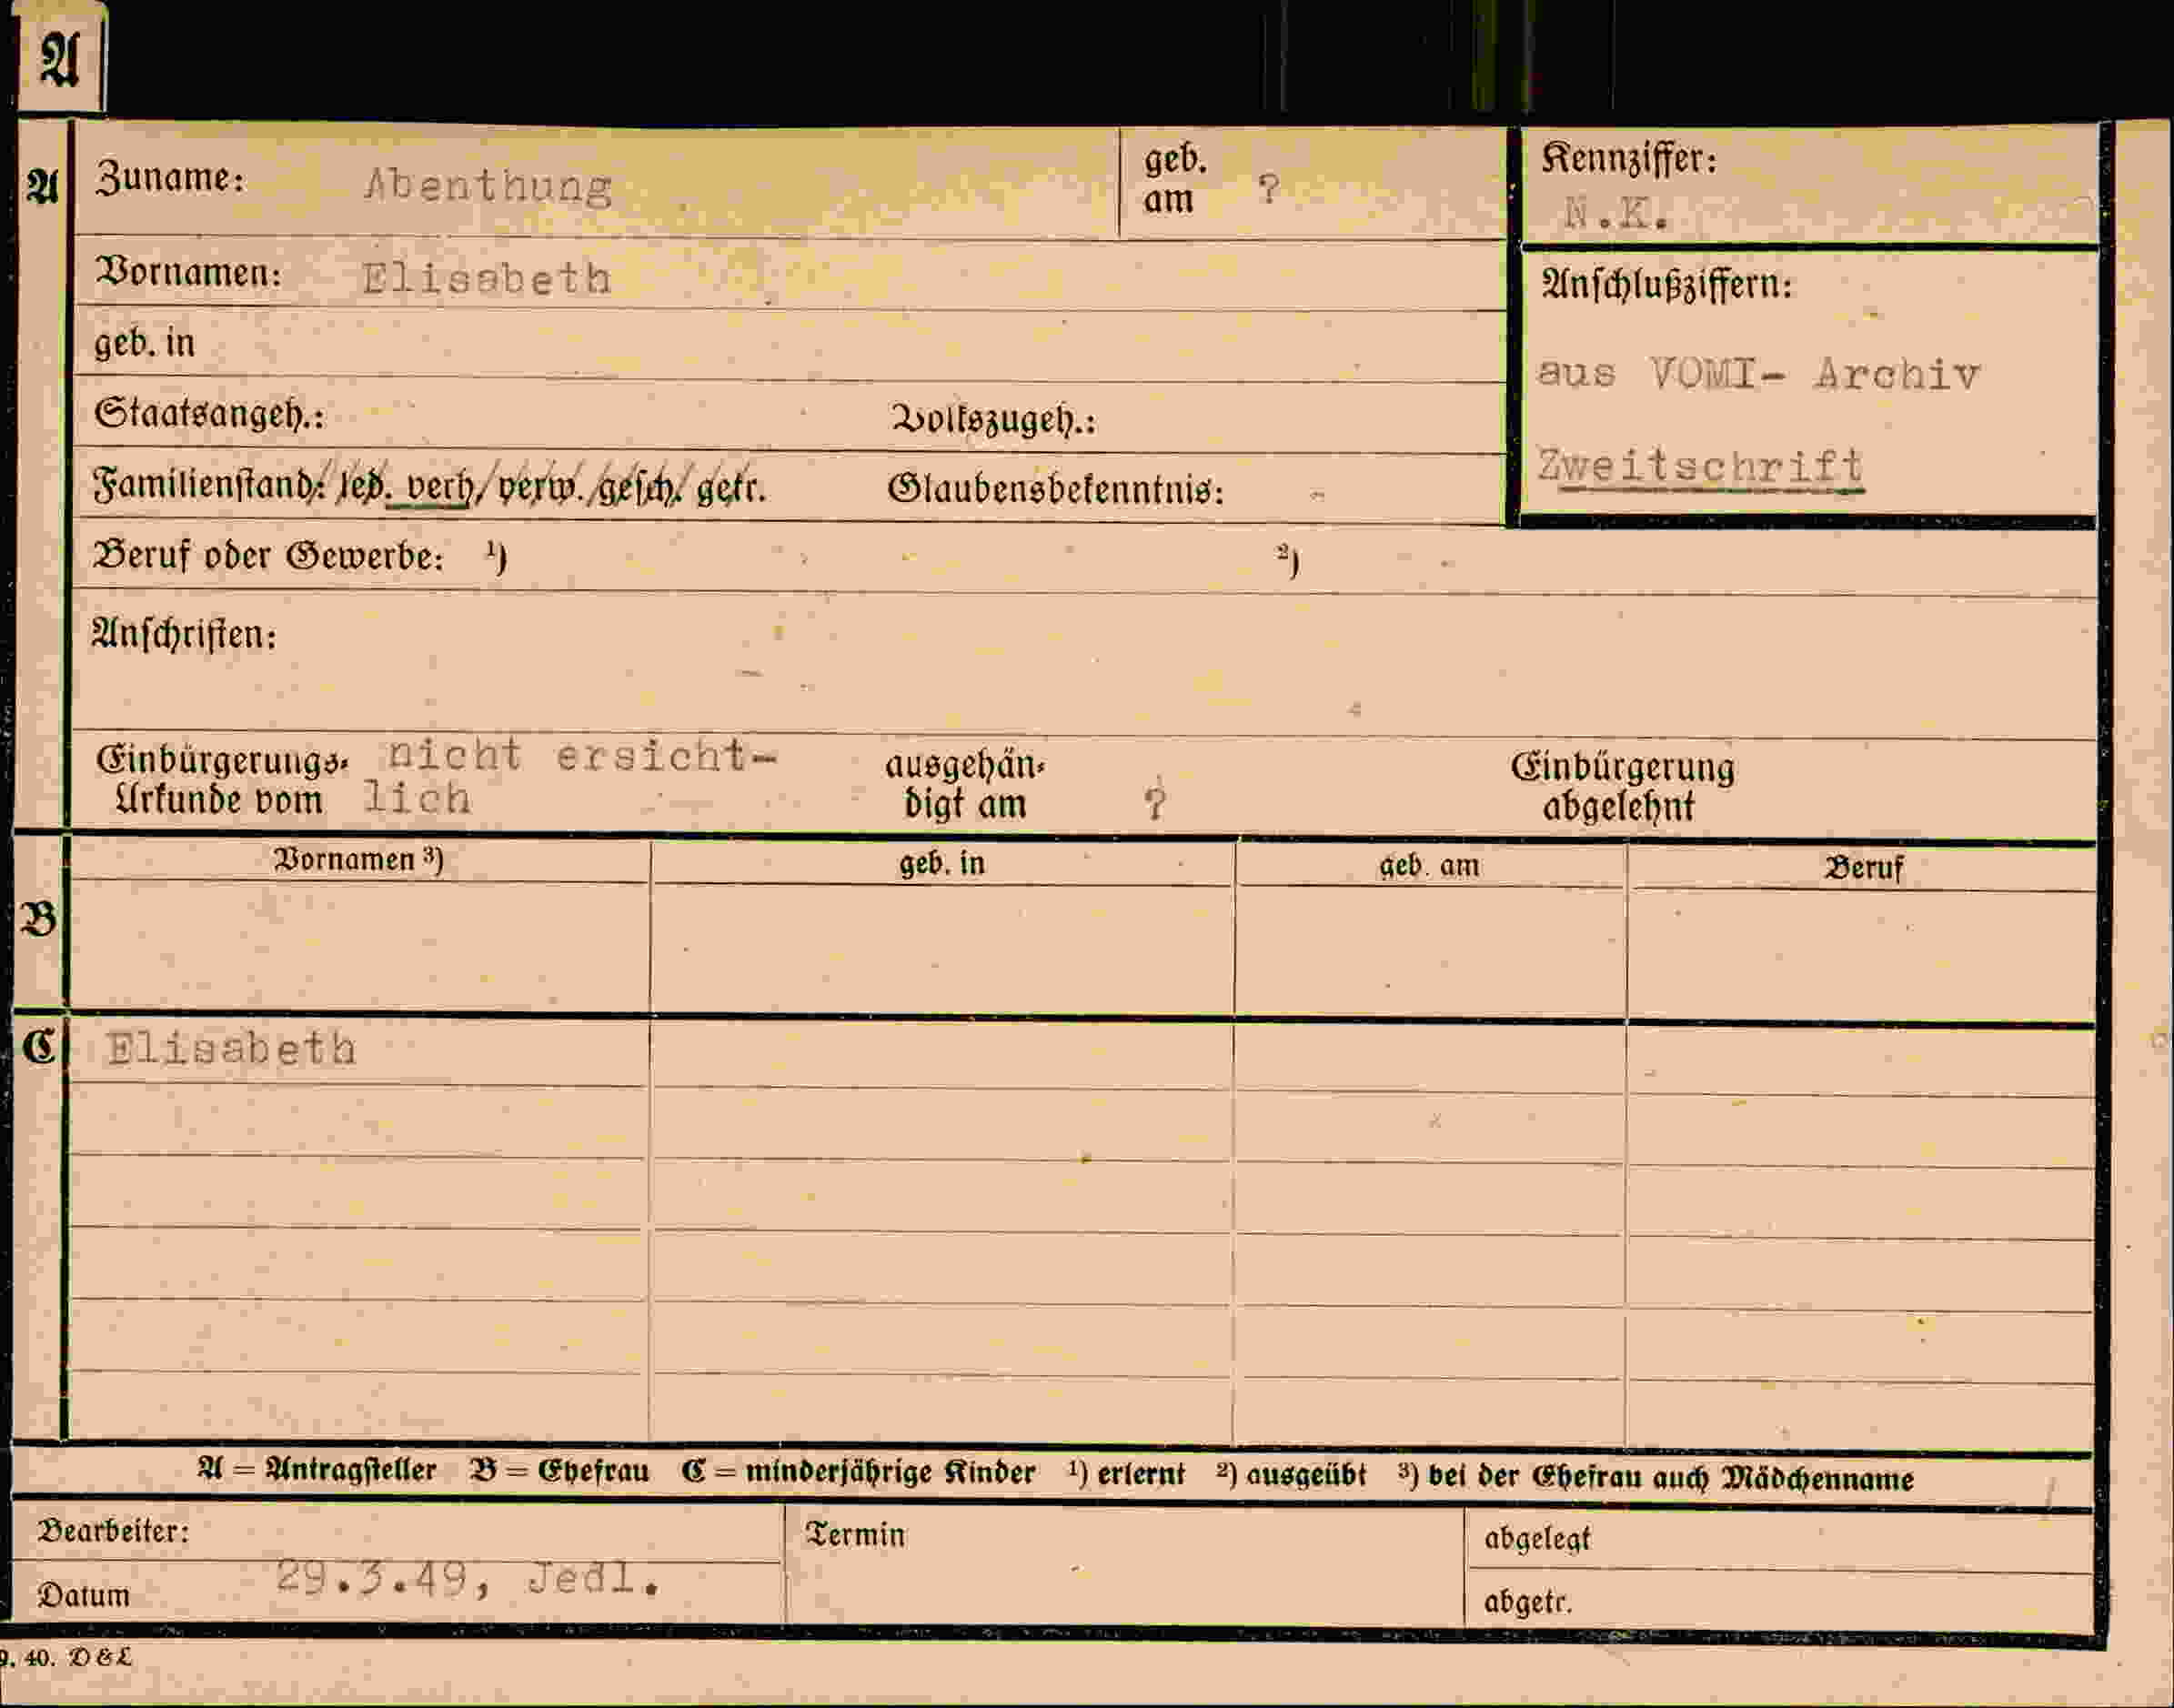 A
A Zuname: Abenthung geb. am ? Kennziffer: N.K.
Vornamen: Elisabeth
geb. in
Anschlußziffern:
aus VOMI- Archiv
Zweitschrift
Staatsangeh.: Volkszugeh.:
Familienstand: led. verh. verw. gesch. getr. Glaubensbekenntnis:
Beruf oder Gewerbe: ¹) ²)
Anschriften:
Einbürgerungs- nicht ersicht- ausgehän- Einbürgerung
Urkunde vom lich digt am ? abgelehnt
Vornamen ³) geb. in geb. am Beruf
B
C Elisabeth
A = Antragsteller B = Ehefrau C = minderjährige Kinder ¹) erlernt ²) ausgeübt ³) bei der Ehefrau auch Mädchenname
Bearbeiter: Termin abgelegt
Datum 29.3.49, Jedl. abgetr.
9. 40. D & L